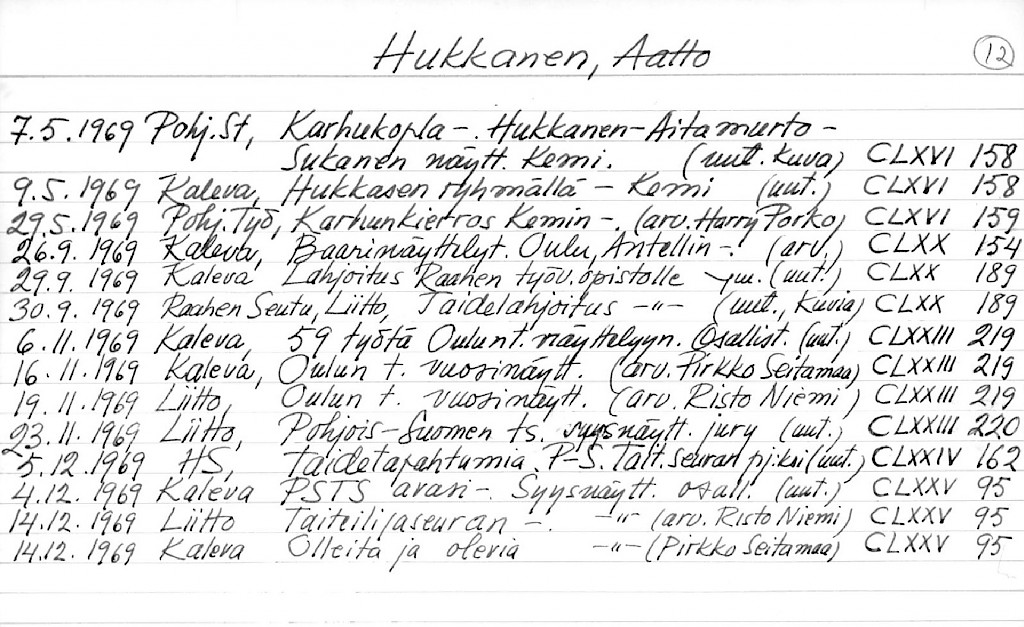 Hukkanen, Aatto 12
7.5.1969 Pohj.St, Karhukopla -. Hukkanen-Aitamurto-
Sukanen näytt. Kemi. (uut. kuva) CLXVI 158
9.5.1969 Kaleva, Hukkasen ryhmällä - Kemi (uut.) CLXVI 158
29.5.1969 Pohj.Työ, Karhunkierros Kemin -. (arv. Harry Porko) CLXVI 159
26.9.1969 Kaleva, Baarinäyttelyt. Oulu, Antellin -. (arv.) CLXX 154
29.9.1969 Kaleva Lahjoitus Raahen työv.opistolle ym. (uut.) CLXX 189
30.9.1969 Raahen Seutu, Liitto, Taidelahjoitus -"- (uut., kuvia) CLXX 189
6.11.1969 Kaleva, 59 työtä Oulun t. näyttelyyn. Osallist. (uut.) CLXXIII 219
16.11.1969 Kaleva, Oulun t. vuosinäytt. (arv. Pirkko Seitamaa) CLXXIII 219
19.11.1969 Liitto, Oulun t. vuosinäytt. (arv. Risto Niemi) CLXXIII 219
23.11.1969 Liitto, Pohjois-Suomen ts. syysnäytt. jury (uut.) CLXXIII 220
5.12.1969 HS, Taidetapahtumia. P-S. Tait.seuran pj.ksi (uut.) CLXXIV 162
4.12.1969 Kaleva PSTS avasi -. Syysnäytt. osall. (uut.) CLXXV 95
14.12.1969 Liitto Taiteilijaseuran -. -"- (arv. Risto Niemi) CLXXV 95
14.12.1969 Kaleva Olleita ja olevia -"- (Pirkko Seitamaa) CLXXV 95